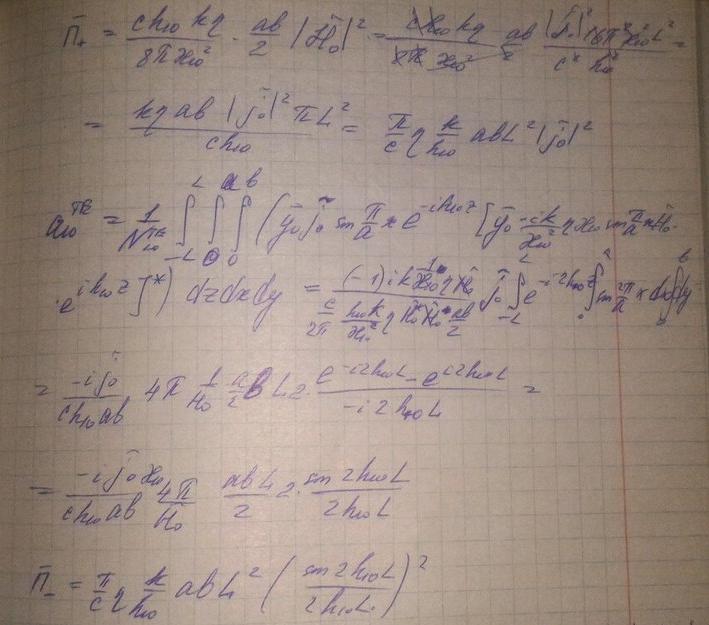 П̄₊ = (c h₁₀ k η / 8π ϰ₁₀²) · (ab / 2) |H̃₀|² = (c h₁₀ k η / 8π ϰ₁₀²) (ab / 2) (|j̃₀|² 16π² ϰ₁₀² L² / c² h₁₀²) =
= (k η ab |j̃₀|² π L² / c h₁₀) = (π / c) η (k / h₁₀) ab L² |j̃₀|²
a₁₀^TE = (1 / N₁₀^TE) ∫_{-L}^{L} ∫_0^a ∫_0^b (ȳ₀ j̃₀ sin (π/a) x e^{-i h₁₀ z} [ȳ₀ (-ik / ϰ₁₀²) η ϰ₁₀ sin (π/a) x H̃₀ ·
· e^{i h₁₀ z}]*) dz dx dy = ((-1) i k (1/ϰ₁₀) η H̃₀* / (c/2π) (h₁₀ k / ϰ₁₀²) η H̃₀* H̃₀ (ab/2)) j̃₀ ∫_{-L}^{L} e^{-i 2h₁₀ z} dz ∫_0^a sin² (π/a) x dx ∫_0^b dy
= (-i j̃₀ / c h₁₀ ab) 4π (1 / H₀) (a/2) b L 2 · (e^{-i2h₁₀L} - e^{i2h₁₀L} / -i 2h₁₀L) =
= (-i j̃₀ ϰ₁₀ / c h₁₀ ab) (4π / H̃₀) (ab L / 2) 2 · (sin 2h₁₀L / 2h₁₀L)
П̄₋ = (π / c) η (k / h₁₀) ab L² (sin 2h₁₀L / 2h₁₀L)²